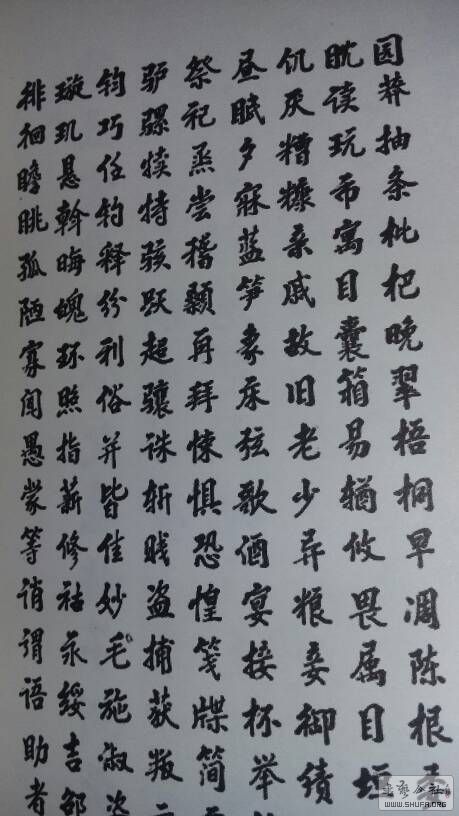 园莽抽条枇杷晚翠梧桐早凋陈根
耽读玩市寓目囊箱易輶攸畏属耳垣
饥厌糟糠亲戚故旧老少异粮妾御绩
昼眠夕寐蓝笋象床弦歌酒宴接杯举
祭祀烝尝稽颡再拜悚惧恐惶笺牒简
驴骡犊特骇跃超骧诛斩贼盗捕获叛
钧巧任钓释纷利俗并皆佳妙毛施淑姿
璇玑悬斡晦魄环照指薪修祜永绥吉劭
徘徊瞻眺孤陋寡闻愚蒙等诮谓语助者
书艺公社
WWW.SHUFA.ORG